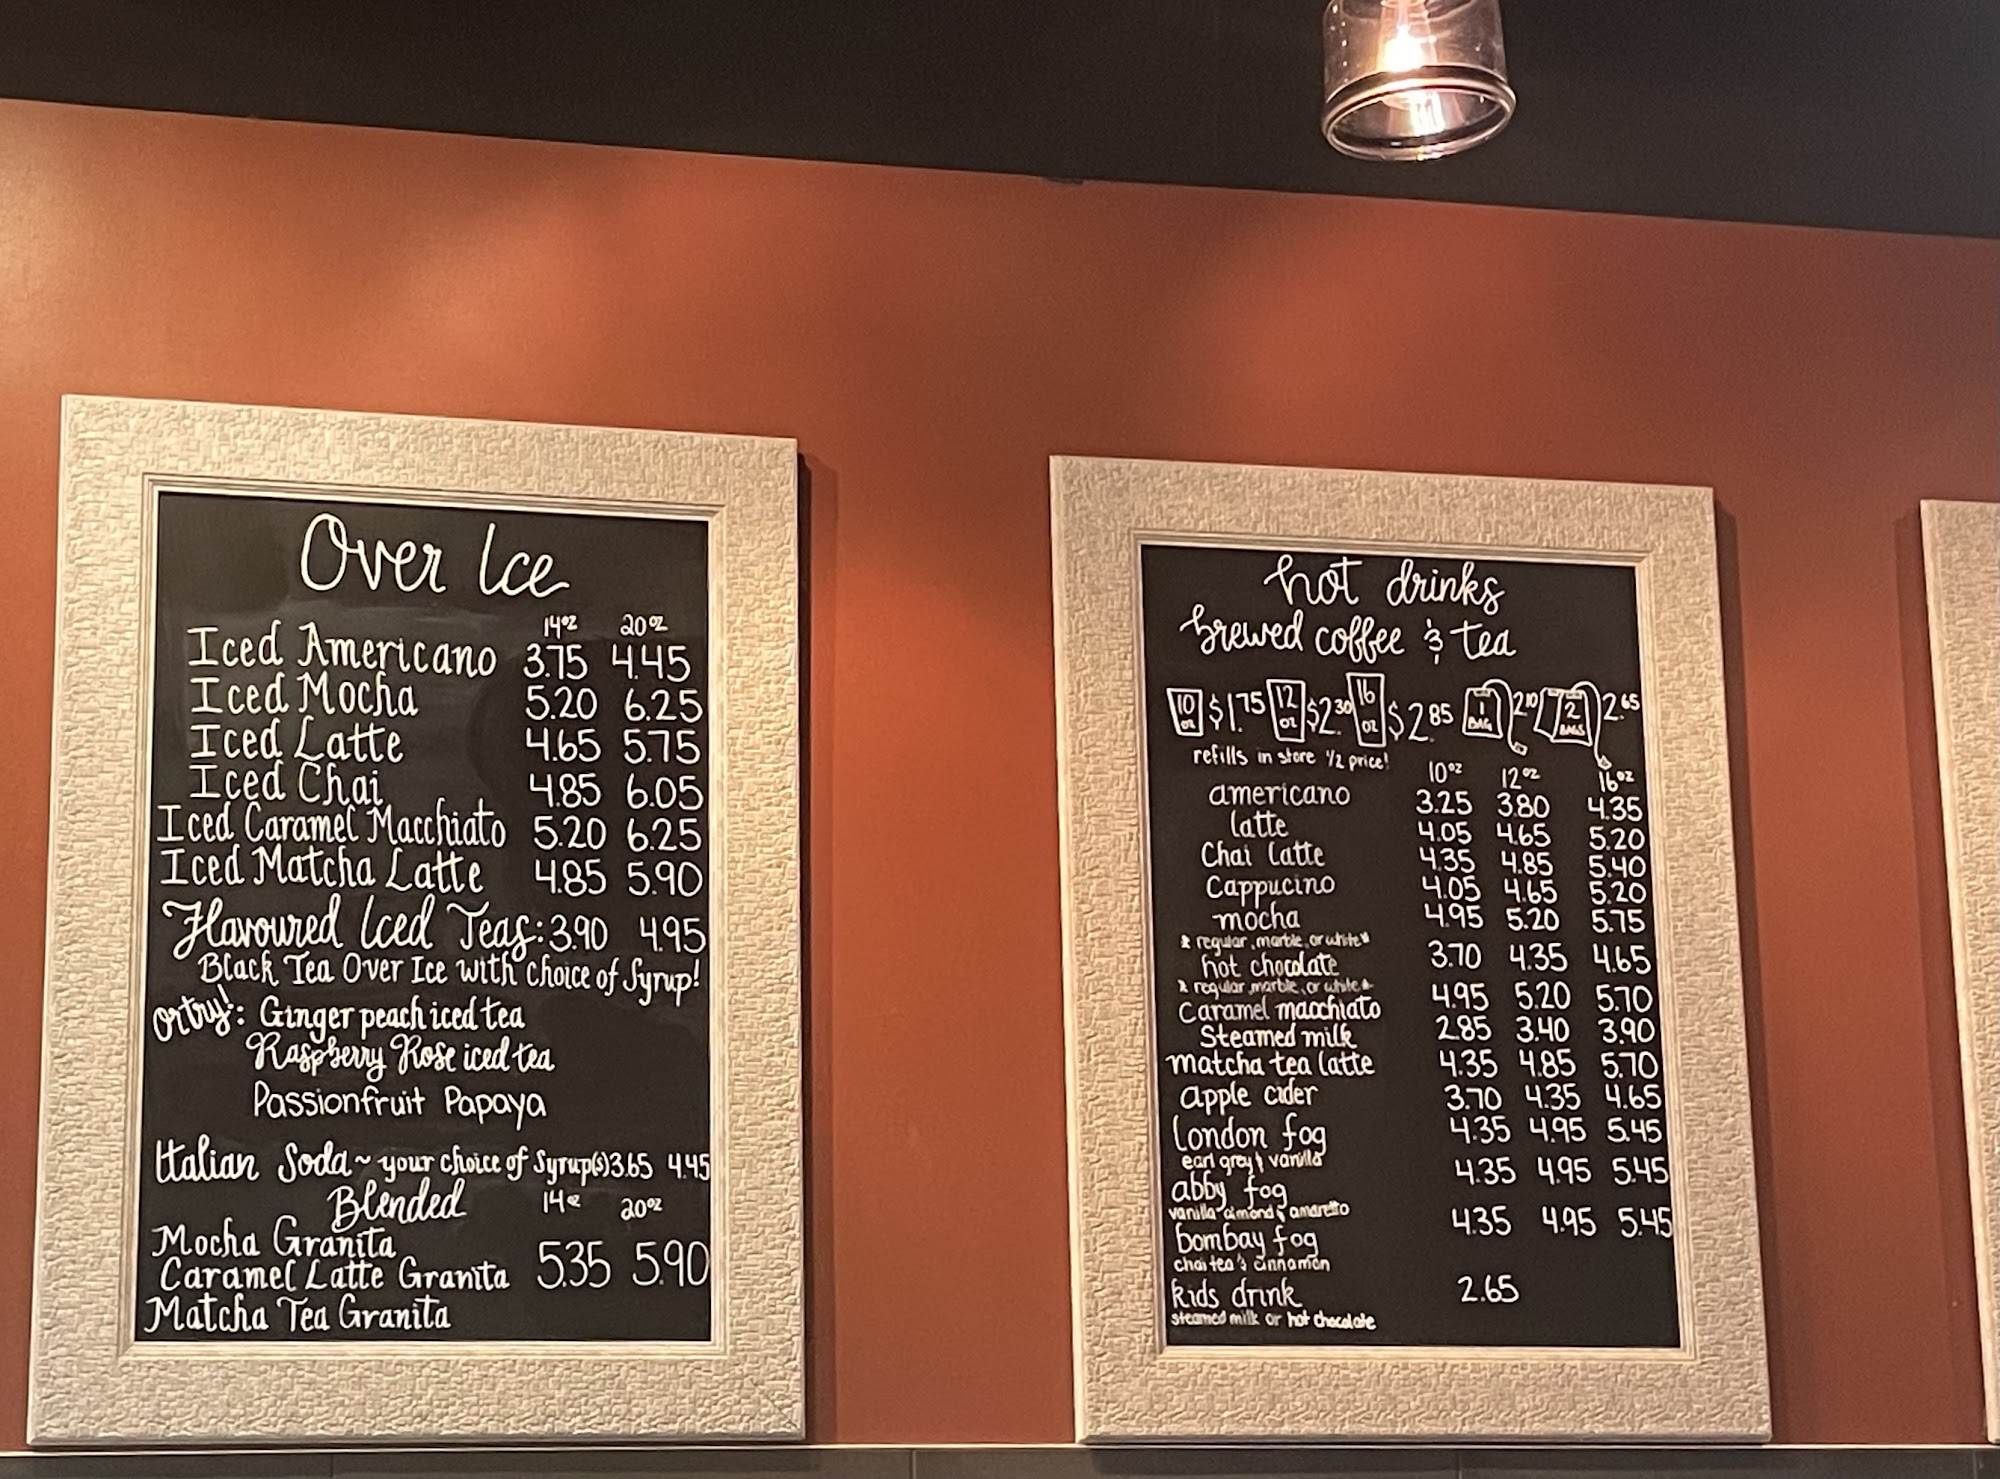 Over Ice
14oz 20oz
Iced Americano 3.75 4.45
Iced Mocha 5.20 6.25
Iced Latte 4.65 5.75
Iced Chai 4.85 6.05
Iced Caramel Macchiato 5.20 6.25
Iced Matcha Latte 4.85 5.90
Flavoured Iced Teas: 3.90 4.95
Black Tea Over Ice with choice of Syrup!
or try!: Ginger peach iced tea
Raspberry Rose iced tea
Passionfruit Papaya
Italian Soda ~ your choice of Syrup(s) 3.65 4.45
Blended 14oz 20oz
Mocha Granita
Caramel Latte Granita 5.35 5.90
Matcha Tea Granita
hot drinks
brewed coffee & tea
10 oz $1.75 12 oz $2.30 16 oz $2.85 1 BAG 2.10 2 BAGS 2.65
refills in store 1/2 price!
10oz 12oz 16oz
americano 3.25 3.80 4.35
latte 4.05 4.65 5.20
Chai latte 4.35 4.85 5.40
Cappucino 4.05 4.65 5.20
mocha 4.95 5.20 5.75
* regular, marble, or white *
hot chocolate 3.70 4.35 4.65
* regular, marble, or white *
Caramel macchiato 4.95 5.20 5.70
Steamed milk 2.85 3.40 3.90
matcha tea latte 4.35 4.85 5.70
apple cider 3.70 4.35 4.65
London fog 4.35 4.95 5.45
earl grey & vanilla
abby fog 4.35 4.95 5.45
vanilla almond & amaretto
bombay fog 4.35 4.95 5.45
chai tea & cinnamon
kids drink 2.65
steamed milk or hot chocolate